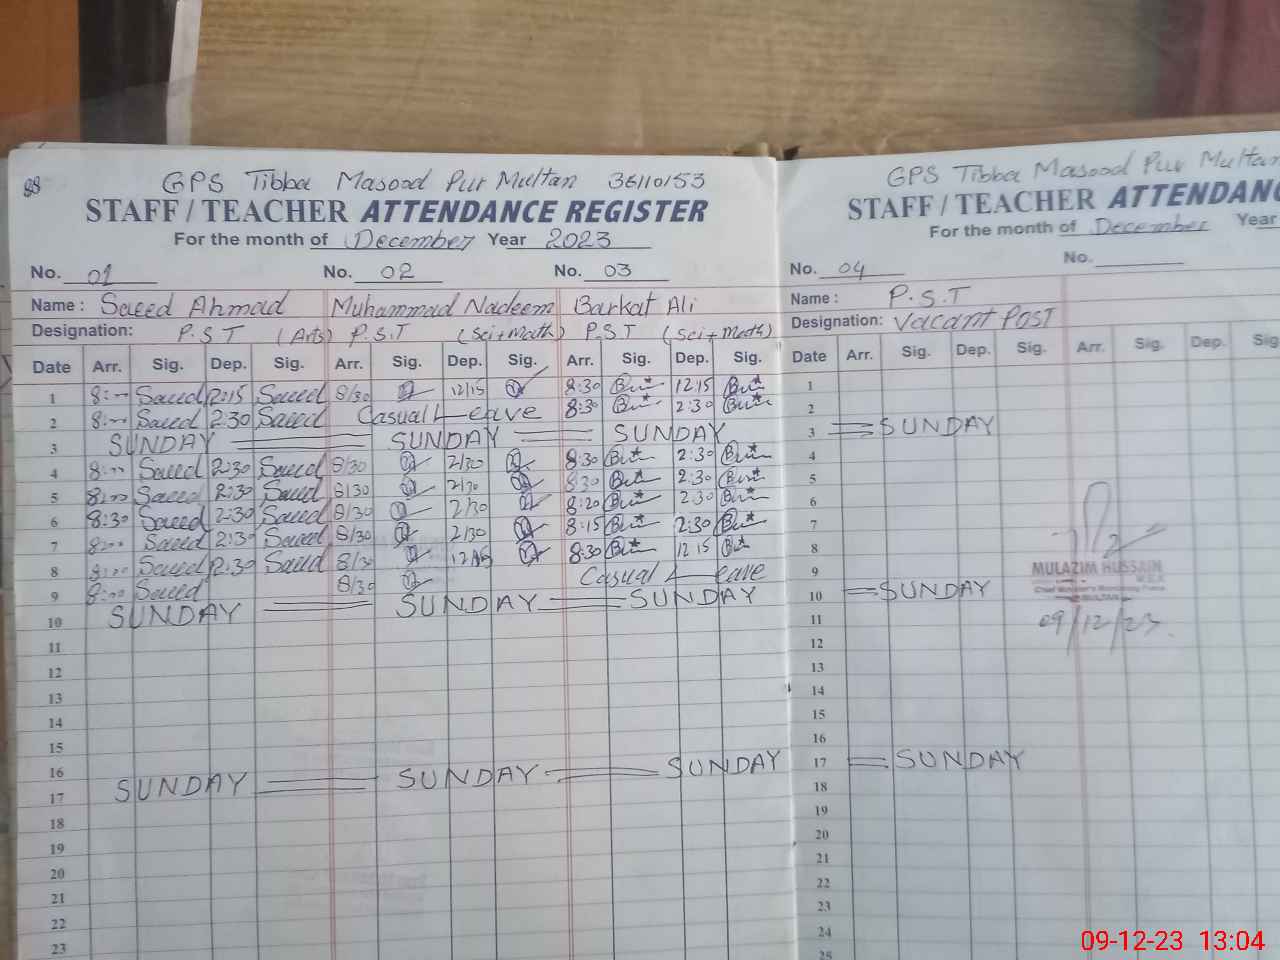 88
GPS Tibba Masood Pur Multan 36110153
STAFF / TEACHER ATTENDANCE REGISTER
For the month of December Year 2023
No. 01 No. 02 No. 03
Name : Saeed Ahmad Muhammad Nadeem Barkat Ali
Designation: P.S.T (Arts) P.S.T (Sci+Math) P.S.T (Sci+Math)
Date Arr. Sig. Dep. Sig. Arr. Sig. Dep. Sig. Arr. Sig. Dep. Sig.
1 8:00 Saeed 2:15 Saeed 8/30 12/15 8:30 12:15
2 8:00 Saeed 2:30 Saeed Casual Leave 8:30 2:30
3 SUNDAY SUNDAY SUNDAY
4 8:00 Saeed 2:30 Saeed 8/30 2/30 8:30 2:30
5 8:00 Saeed 2:30 Saeed 8/30 2/30 8:30 2:30
6 8:30 Saeed 2:30 Saeed 8/30 2/30 8:20 2:30
7 8:00 Saeed 2:30 Saeed 8/30 2/30 8:15 2:30
8 8:00 Saeed 2:30 Saeed 8/30 8:30 12 15
9 8:00 Saeed 8/30 Casual Leave
10 SUNDAY SUNDAY SUNDAY
11
12
13
14
15
16
17 SUNDAY SUNDAY SUNDAY
18
19
20
21
22
23
GPS Tibba Masood Pur Multan
STAFF / TEACHER ATTENDANC
For the month of December Year
No. 04 No.
Name : P.S.T
Designation: Vacant Post
Date Arr. Sig. Dep. Sig. Arr. Sig. Dep. Sig
1
2
3 SUNDAY
4
5
6
7
8
9
10 SUNDAY
11
12
13
14
15
16
17 SUNDAY
18
19
20
21
22
23
24
25
MULAZIM HUSSAIN
MULTAN
09/12/23
09-12-23 13:04